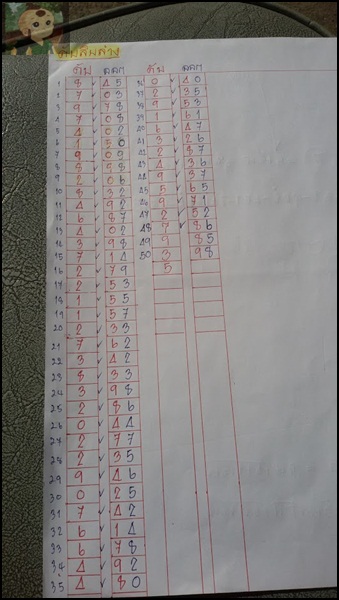 ดับ ออก ดับ ออก
1 8 45
2 7 03
3 9 78
4 7 08
5 4 02
6 1 50
7 9 09
8 5 58
9 2 06
10 8 32
11 4 92
12 6 87
13 4 02
14 3 98
15 7 14
16 2 79
17 2 53
18 1 55
19 1 57
20 2 33
21 7 62
22 3 42
23 8 33
24 3 98
25 2 86
26 0 44
27 2 77
28 2 35
29 9 46
30 0 25
31 7 42
32 6 14
33 6 78
34 4 92
35 4 80
0 40
2 35
9 53
39 1 61
40 6 47
41 3 26
42 2 87
43 4 36
44 9 37
45 5 65
46 9 71
47 2 52
48 7 86
49 9 85
50 3 98
5